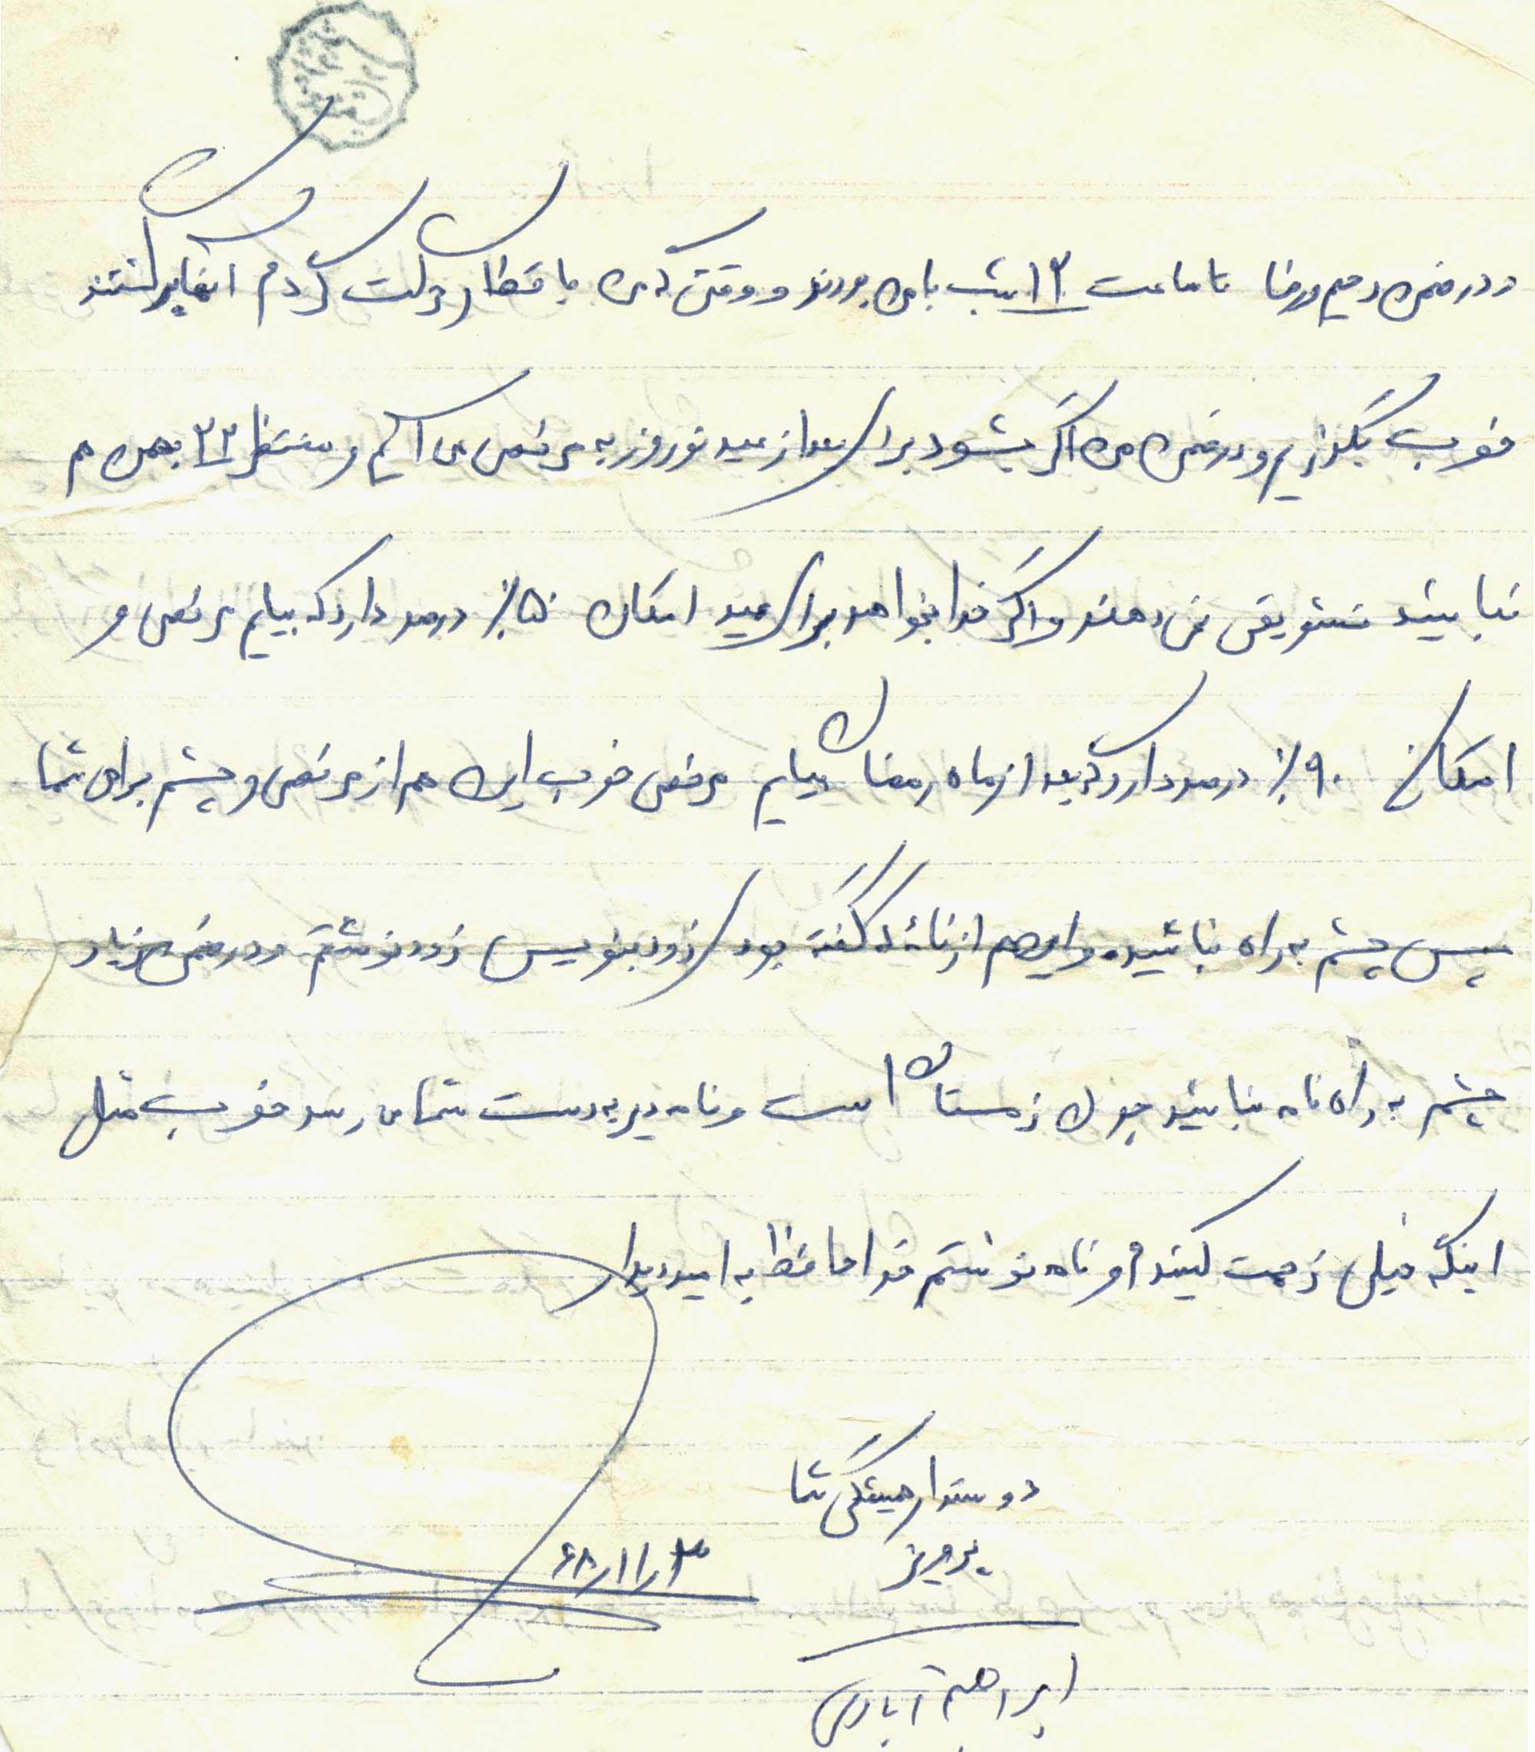 و در ضمن رحیم و رضا تا ساعت ۱۲ شب با من بودند و وقتی که من با قطار حرکت کردم آنها برگشتند
خوب بگذریم و در ضمن من اگر بشود برای بعد از عید نوروز به مرخصی می آیم و منتظر ۲۲ بهمن م
نباشید تشویقی نمی دهند و اگر خدا بخواهد برای عید امکان ۵۰٪ درصد دارد که بیایم مرخصی و
امکان ۹۰٪ درصد دارد که بعد از ماه رمضان بیایم مرخصی خوب این هم از مرخصی و چشم براهی شما
پس چشم به راه نباشید. و این هم از نامه که گفته بودی زود بنویس زود نوشتم و در ضمن زیاد
چشم به راه نامه نباشید چون زمستان است و نامه دیر به دست شما می رسد خوب مثل
اینکه خیلی زحمت کشیدم و نامه نوشتم خداحافظ به امید دیدار
دوستدار همیشگی شما
پرویز
۶۸/۱۱/۳
ابراهیم آبادی